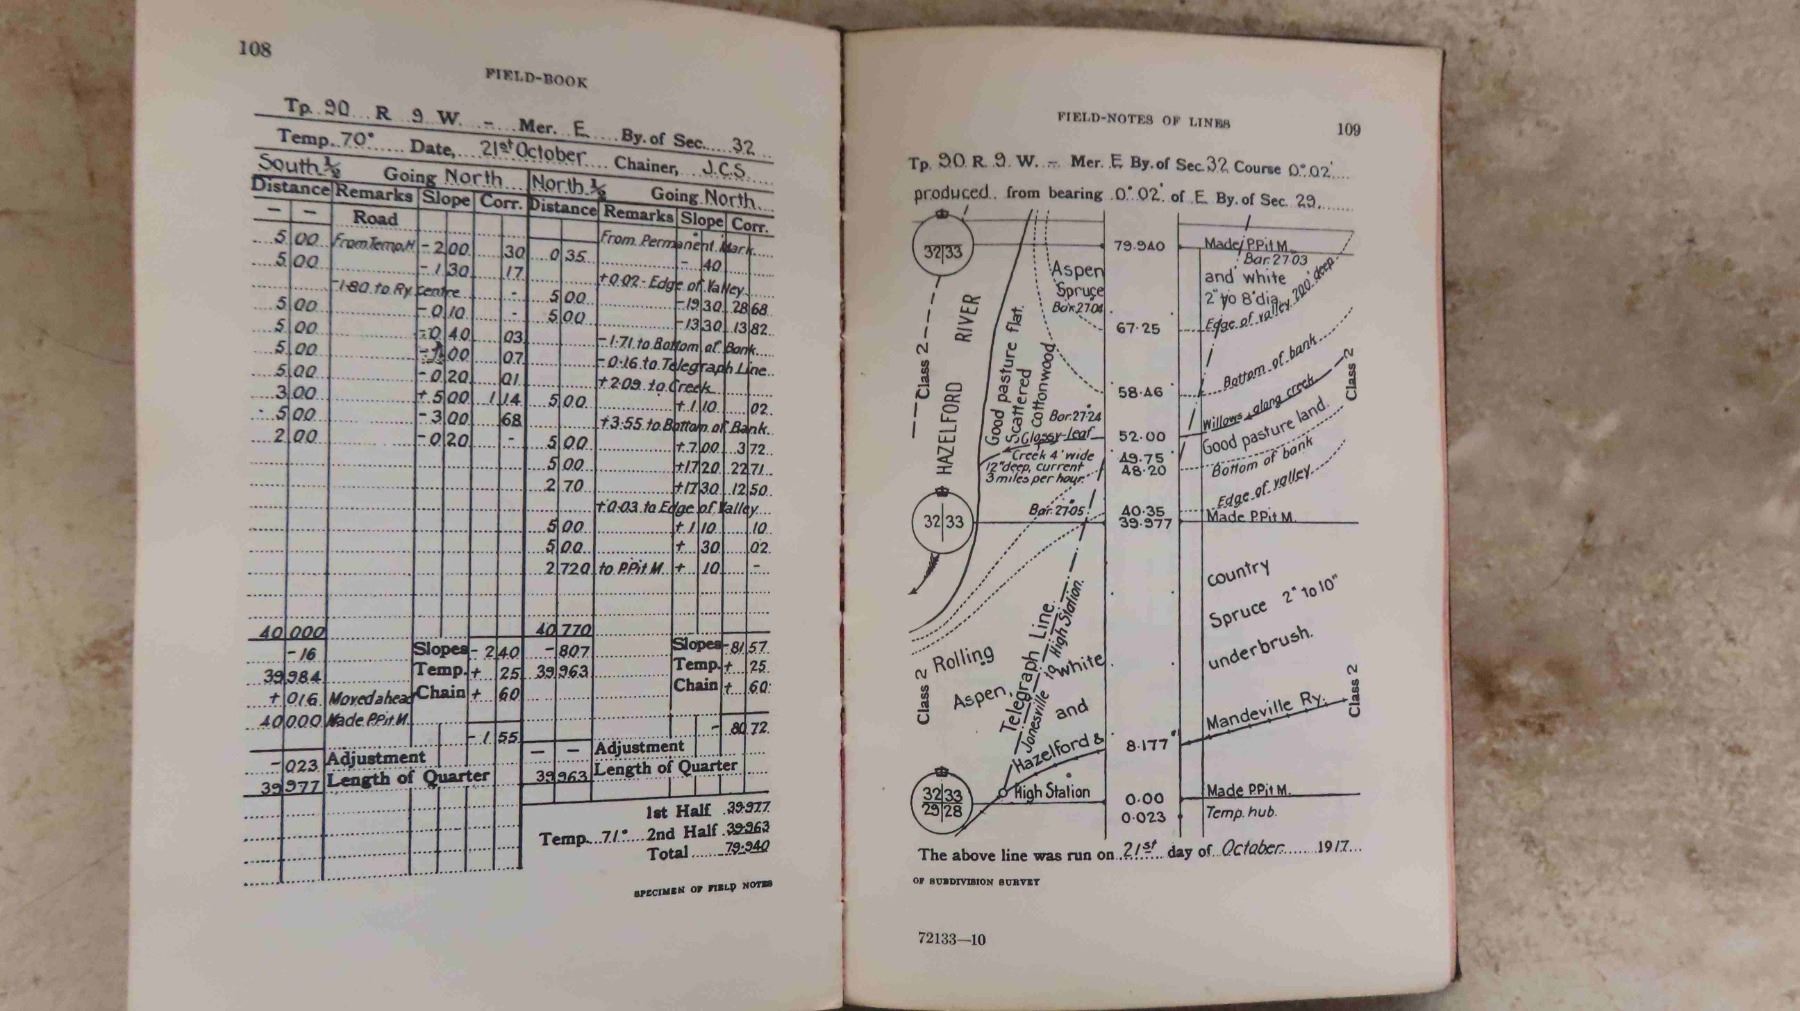 108
FIELD-BOOK
Tp. 90 R 9 W. - Mer. E By. of Sec. 32
Temp. 70° Date, 21st October Chainer, J.C.S.
South ½ Going North North ½ Going North
Distance Remarks Slope Corr. Distance Remarks Slope Corr.
- - Road
From Permanent Mark
5 00 From Temp. H - 2 00 30 0 35 - 40
5 00 - 1 30 17 +0.02 - Edge of Valley
-1.80 to Ry centre - 5 00 -19 30 28 68
5 00 - 0 10 - 5 00 -13 30 13 82
5 00 - 0 40 03 -1.71 to Bottom of Bank
5 00 00 07 -0.16 to Telegraph Line
5 00 - 0 20 01 +2.09 to Creek
3 00 + 5 00 1 14 5 00 +1 10 02
5 00 - 3 00 68 +3.55 to Bottom of Bank
2 00 - 0 20 - 5 00 +7 00 3 72
5 00 +17 20 22 71
2 70 +17 30 12 50
+0.03 to Edge of Valley
5 00 +1 10 10
5 00 + 30 02
2 720 to P.Pit M. + 10 -
40 000 40 770
-16 Slopes - 2 40 -807 Slopes -81 57
39 984 Temp. + 25 39 963 Temp. + 25
+ 016 Moved ahead Chain + 60 Chain + 60
40 000 Made P.Pit M.
- 1 55 - 80 72
- 023 Adjustment - - Adjustment
39 977 Length of Quarter 39 963 Length of Quarter
1st Half 39.977
Temp. 71° 2nd Half 39.963
Total 79.940
SPECIMEN OF FIELD NOTES
FIELD-NOTES OF LINES
109
Tp. 90 R. 9 W. - Mer. E By. of Sec. 32 Course 0° 02'
produced from bearing 0° 02' of E By. of Sec. 29,
32 33
79.940
Made P.Pit M.
Bar. 27.03
Aspen
Spruce
Bar. 27.04
and white
2" to 8" dia.
67.25
Edge of valley 200' deep
Class 2
HAZELFORD RIVER
Good pasture flat.
Scattered
Cottonwood
58.46
Bottom of bank
Class 2
Bar. 27.24
Glossy-leaf
52.00
Willows along creek
Creek 4' wide
12" deep, current
3 miles per hour.
49.75
48.20
Good pasture land.
Bottom of bank
Edge of valley
Bar. 27.05
40.35
39.977
Made P.Pit M.
32 33
country
Spruce 2" to 10"
underbrush.
Rolling
Aspen,
White
and
Class 2
Telegraph Line
Jonesville to High Station.
Hazelford &
8.177
Mandeville Ry.
Class 2
32 33
29 28
High Station
0.00
Made P.Pit M.
0.023
Temp. hub.
The above line was run on 21st day of October 1917
OF SUBDIVISION SURVEY
72133—10